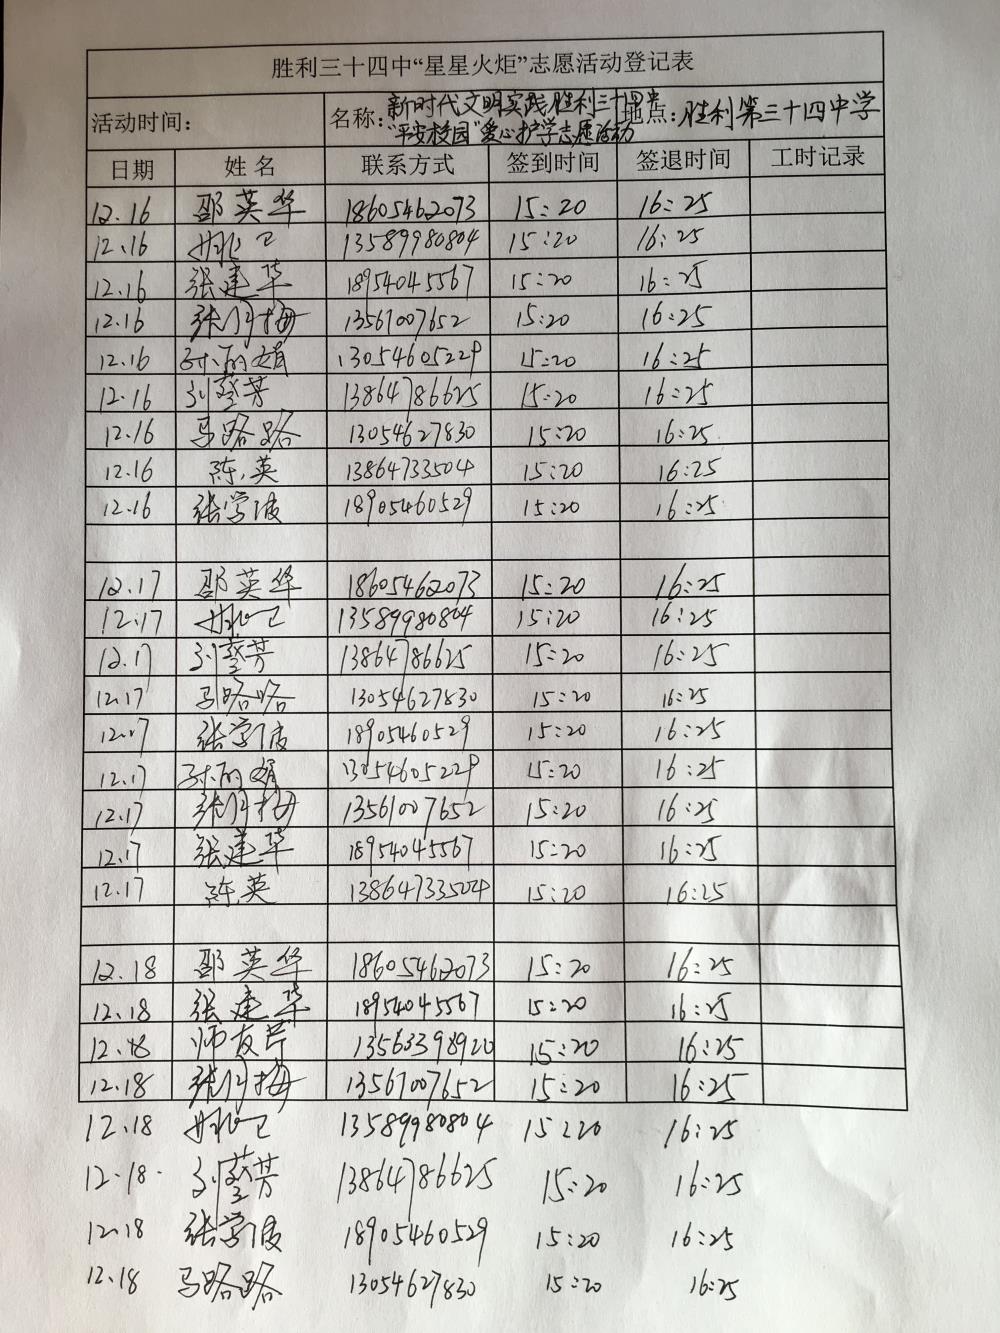 胜利三十四中“星星火炬”志愿活动登记表
活动时间: 名称: 新时代文明实践胜利三十四中 地点: 胜利第三十四中学
“平安校园”爱心护学志愿活动
日期 姓名 联系方式 签到时间 签退时间 工时记录
12.16 邵英华 18605462073 15:20 16:25
12.16 13589980804 15:20 16:25
12.16 张建华 18954045567 15:20 16:25
12.16 张月梅 13561007652 15:20 16:25
12.16 孙丽娟 13054605229 15:20 16:25
12.16 刘登芳 13864786625 15:20 16:25
12.16 马路路 13054627830 15:20 16:25
12.16 陈英 13864733504 15:20 16:25
12.16 张学波 18905460529 15:20 16:25
12.17 邵英华 18605462073 15:20 16:25
12.17 13589980804 15:20 16:25
12.17 刘登芳 13864786625 15:20 16:25
12.17 马路路 13054627830 15:20 16:25
12.17 张学波 18905460529 15:20 16:25
12.17 孙丽娟 13054605229 15:20 16:25
12.17 张月梅 13561007652 15:20 16:25
12.17 张建华 18954045567 15:20 16:25
12.17 陈英 13864733504 15:20 16:25
12.18 邵英华 18605462073 15:20 16:25
12.18 张建华 18954045567 15:20 16:25
12.18 师友芹 13563398920 15:20 16:25
12.18 张月梅 13561007652 15:20 16:25
12.18 13589980804 15:20 16:25
12.18 刘登芳 13864786625 15:20 16:25
12.18 张学波 18905460529 15:20 16:25
12.18 马路路 13054627830 15:20 16:25